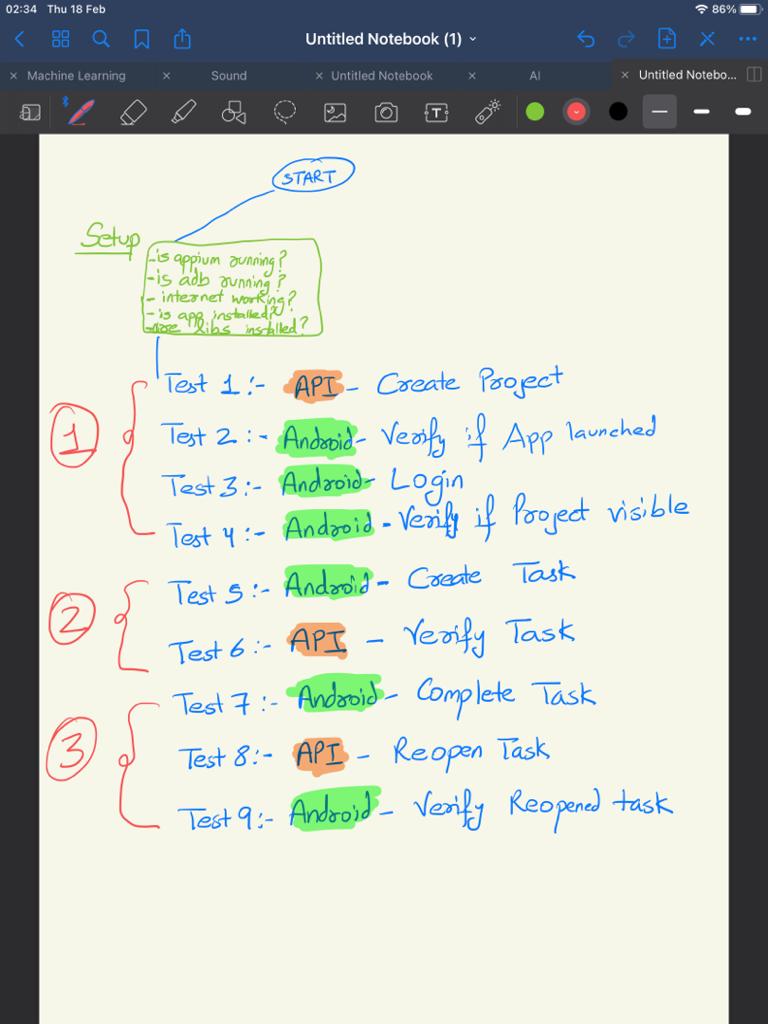 02:34 Thu 18 Feb 86%
Untitled Notebook (1)
Machine Learning Sound Untitled Notebook AI Untitled Notebo...
T
START
Setup
-is appium running?
-is adb running?
- internet working?
- is app installed?
-are libs installed?
1
Test 1:- API - Create Project
Test 2:- Android- Verify if App launched
Test 3:- Android- Login
Test 4:- Android - Verify if Project visible
2
Test 5:- Android - Create Task
Test 6:- API - Verify Task
3
Test 7:- Android - Complete Task
Test 8:- API - Reopen Task
Test 9:- Android - Verify Reopened task